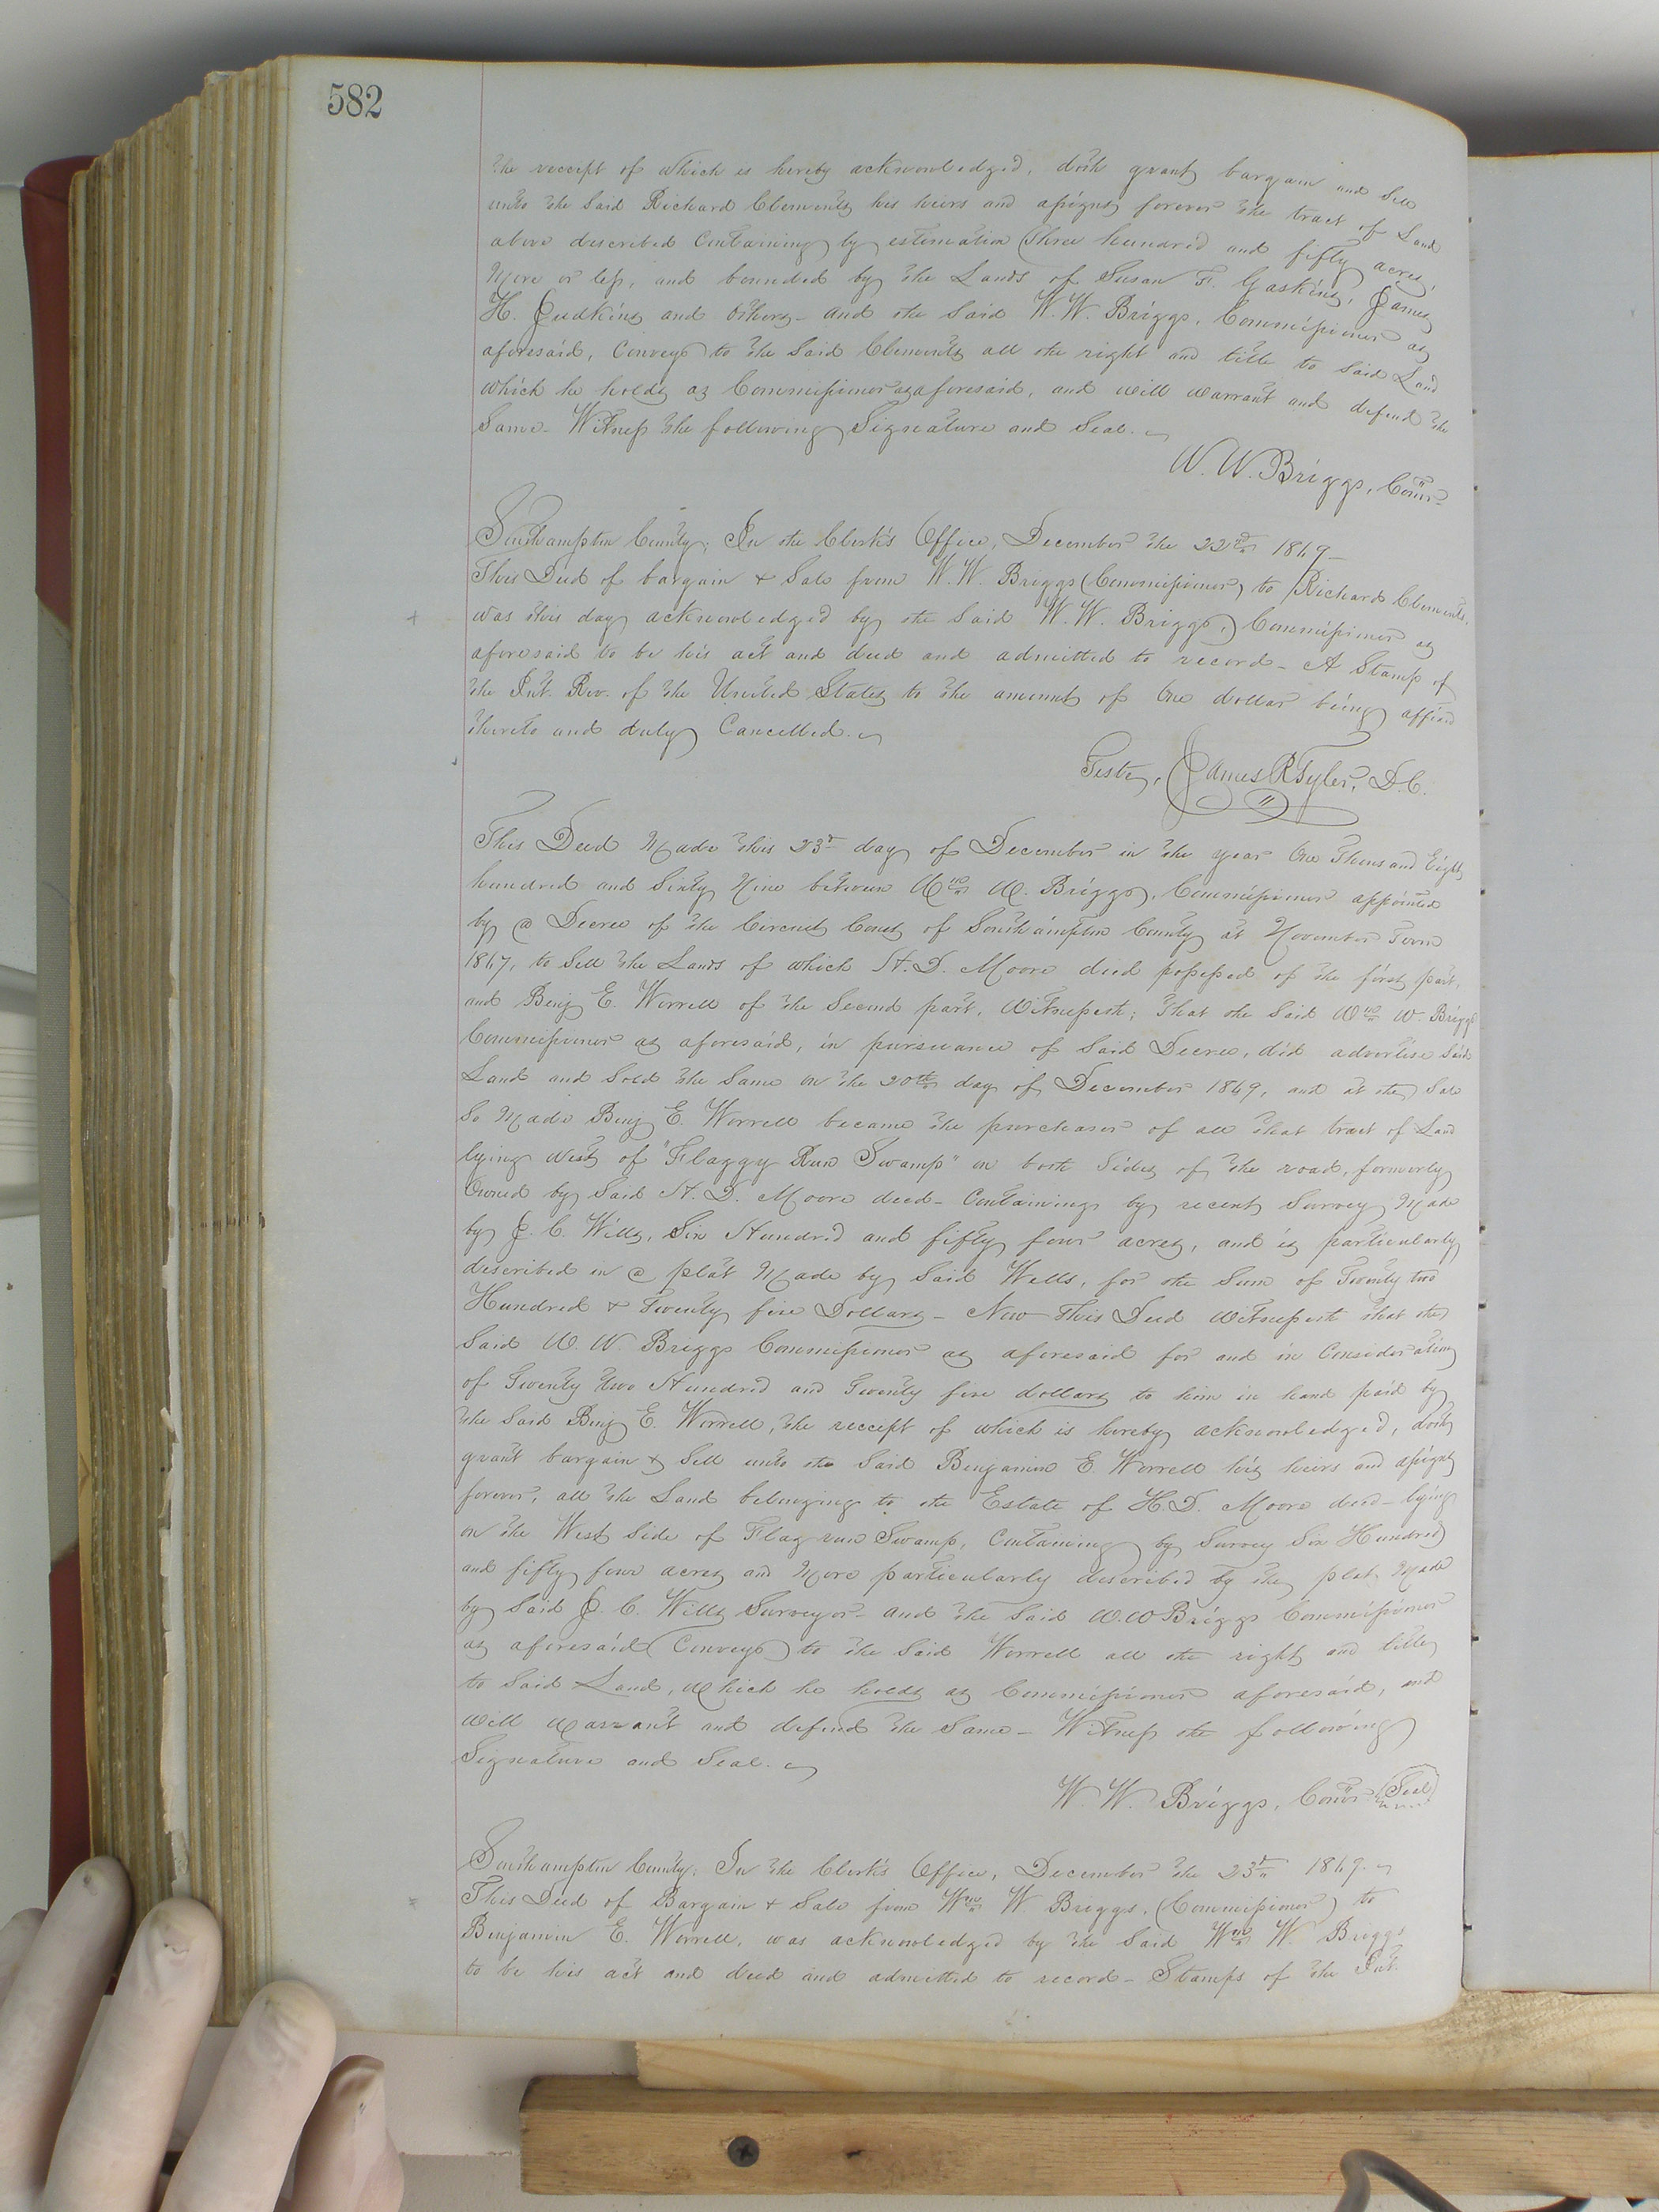 582
the receipt of which is hereby acknowledged, doth grant bargain and Sell
unto the Said Richard Clements his heirs and assigns forever the tract of Land
above described Containing by estimation Three hundred and fifty acres,
More or less, and bounded by the Lands of Susan F. Gaskins, James
H. Judkins and Others - and the Said W. W. Briggs, Commissioner as
aforesaid, Conveys to the Said Clements all the right and title to Said Land
which he holds as Commissioner as aforesaid, and will warrant and defend the
Same - Witness the following Signature and Seal.
W. W. Briggs, Comr
Southampton County; In the Clerk's Office, December the 22nd 1869 -
This Deed of bargain & Sale from W. W. Briggs (Commissioner) to Richard Clements,
was this day acknowledged by the Said W. W. Briggs, Commissioner as
aforesaid to be his act and deed and admitted to record - A Stamp of
the Int. Rev. of the United States to the amount of One dollar being affixed
thereto and duly Cancelled.
Teste, James R Tyler, D.C.
This Deed Made this 23d day of December in the year One Thousand Eight
hundred and Sixty Nine between Wm W. Briggs, Commissioner appointed
by a Decree of the Circuit Court of Southampton County at November Term
1867, to Sell the Lands of which H. D. Moore died possessed of the first part,
and Benj E. Worrell of the Second part, Witnesseth; That the Said Wm W. Briggs
Commissioner as aforesaid, in pursuance of Said Decree, did advertise Said
Land and Sold the Same on the 20th day of December 1869, and at the Sale
So Made Benj E. Worrell became the purchaser of all that tract of Land
lying West of "Flaggy Run Swamp" on both Sides of the road, formerly
Owned by Said H. D. Moore decd - Containing by recent Survey Made
by J. C. Wills, Six Hundred and fifty four acres, and is particularly
described in a plat Made by Said Wells, for the Sum of Twenty two
Hundred & Twenty five Dollars - Now This Deed Witnesseth that the
Said W. W. Briggs Commissioner as aforesaid for and in Consideration
of Twenty two Hundred and Twenty five dollars to him in hand paid by
the Said Benj E. Worrell, the receipt of which is hereby acknowledged, doth
grant bargain & Sell unto the Said Benjamin E. Worrell his heirs and assigns
forever, all the Land belonging to the Estate of H. D. Moore decd - lying
on the West Side of Flag run Swamp, Containing by Survey Six Hundred
and fifty four acres and More particularly described by the plat Made
by Said J. C. Wills Surveyor - and the Said W. W Briggs Commissioner
as aforesaid (Conveys) to the Said Worrell all the right and title
to Said Land, Which he holds as Commissioner aforesaid, and
will Warrant and defend the Same - Witness the following
Signature and Seal.
W. W. Briggs, Comr Seal
Southampton County, In the Clerk's Office, December the 23d 1869.
This Deed of Bargain & Sale from Wm W. Briggs, (Commissioner) to
Benjamin E. Worrell, was acknowledged by the Said Wm W. Briggs
to be his act and deed and admitted to record - Stamps of the Int.